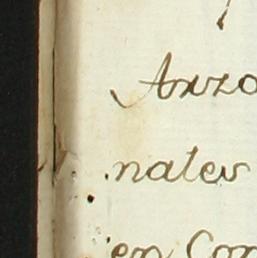 Arzo
nales
en Con